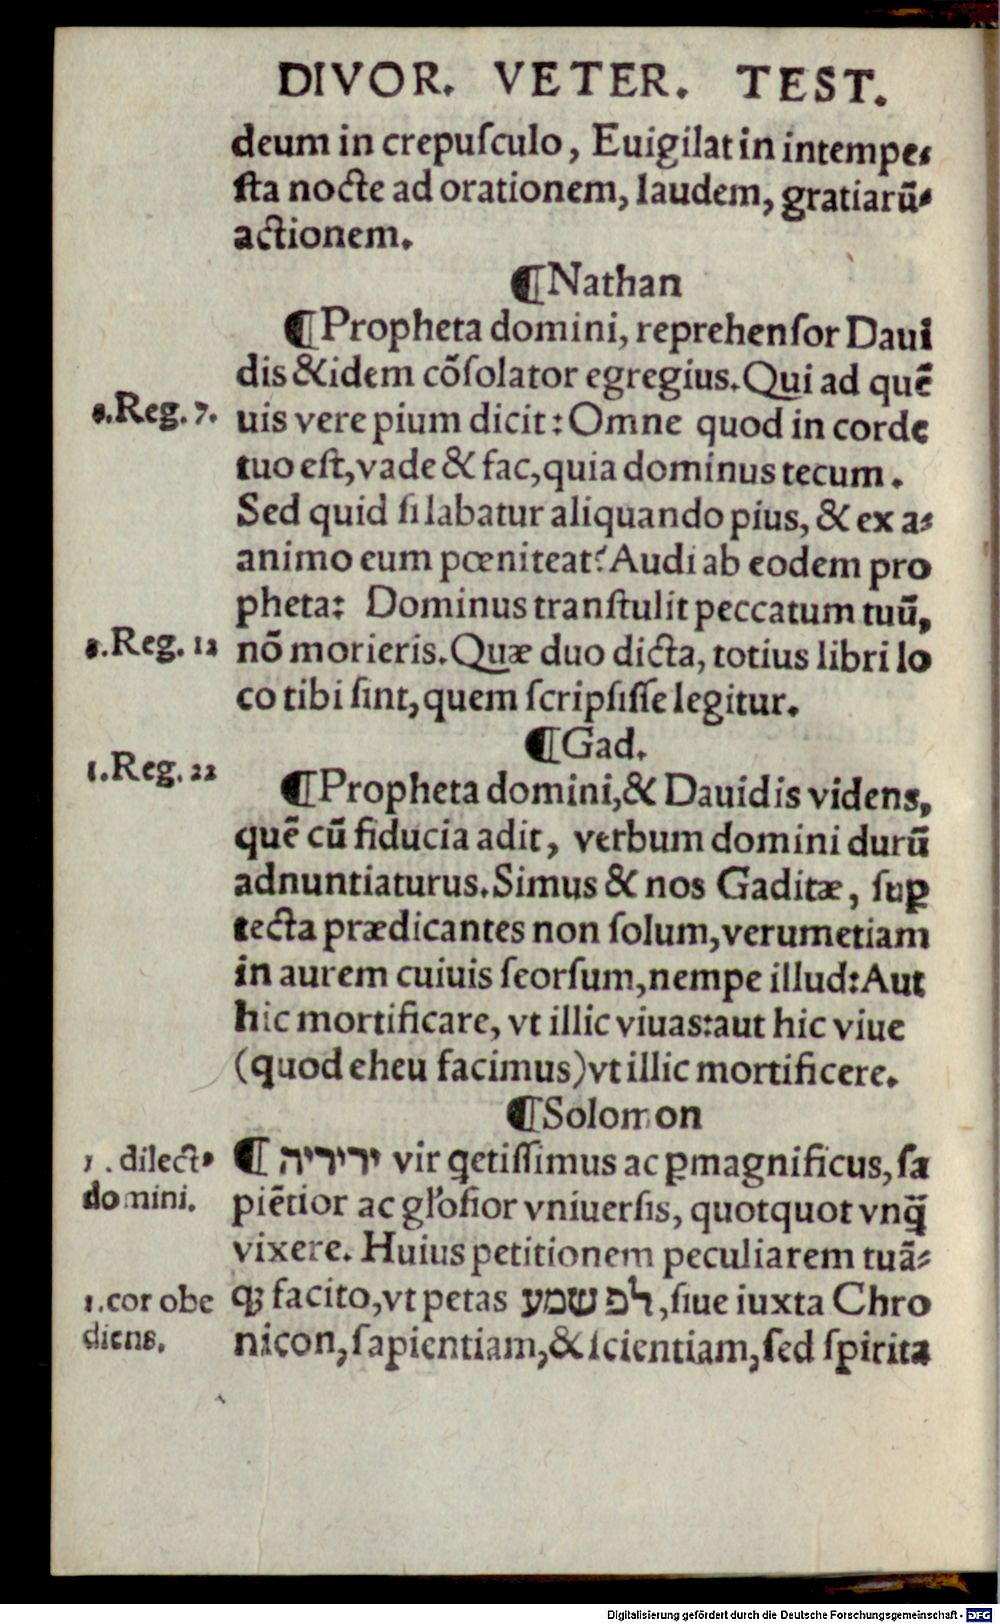 DIVOR. VETER. TEST.
deum in crepuſculo, Euigilat in intempe⸗
ſta nocte ad orationem, laudem, gratiarū⸗
actionem.
¶Nathan
¶Propheta domini, reprehenſor Daui
dis &idem cōſolator egregius. Qui ad quē
2.Reg. 7. uis vere pium dicit: Omne quod in corde
tuo eſt, vade & fac, quia dominus tecum.
Sed quid ſi labatur aliquando pius, & ex a⸗
animo eum pœniteat? Audi ab eodem pro
pheta: Dominus tranſtulit peccatum tuū,
2.Reg. 12 nō morieris. Quæ duo dicta, totius libri lo
co tibi ſint, quem ſcripſiſſe legitur.
¶Gad.
1.Reg. 22 ¶Propheta domini, & Dauidis videns,
quē cū fiducia adit, verbum domini durū
adnuntiaturus. Simus & nos Gaditæ, ſuꝑ
tecta prædicantes non ſolum, verumetiam
in aurem cuiuis ſeorſum, nempe illud: Aut
hic mortificare, vt illic viuas: aut hic viue
(quod eheu facimus) vt illic mortificere.
¶Solomon
ı. dilect⸗ ¶ ידידיה vir qetiſſimus ac ꝑmagnificus, ſa
domini. piētior ac gloſior vniuerſis, quotquot vnq̄
vixere. Huius petitionem peculiarem tuā⸗
ı.cor obe qꝫ facito, vt petas לב שמע, ſiue iuxta Chro
diens. nicon, ſapientiam, & ſcientiam, ſed ſpirita
Digitalisierung gefördert durch die Deutsche Forschungsgemeinschaft - DFG